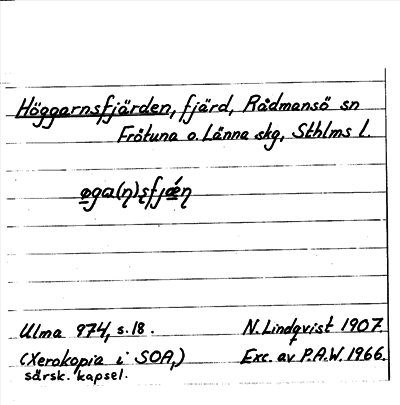 Höggarnsfjärden, fjärd, Rådmansö sn
Frötuna o. Länna skg, Sthlms l.
øga(η)sfjǽη
Ulma 974, s. 18. N. Lindqvist 1907.
(Xerokopia i SOA,) Exc. av P.A.W. 1966.
särsk. kapsel.